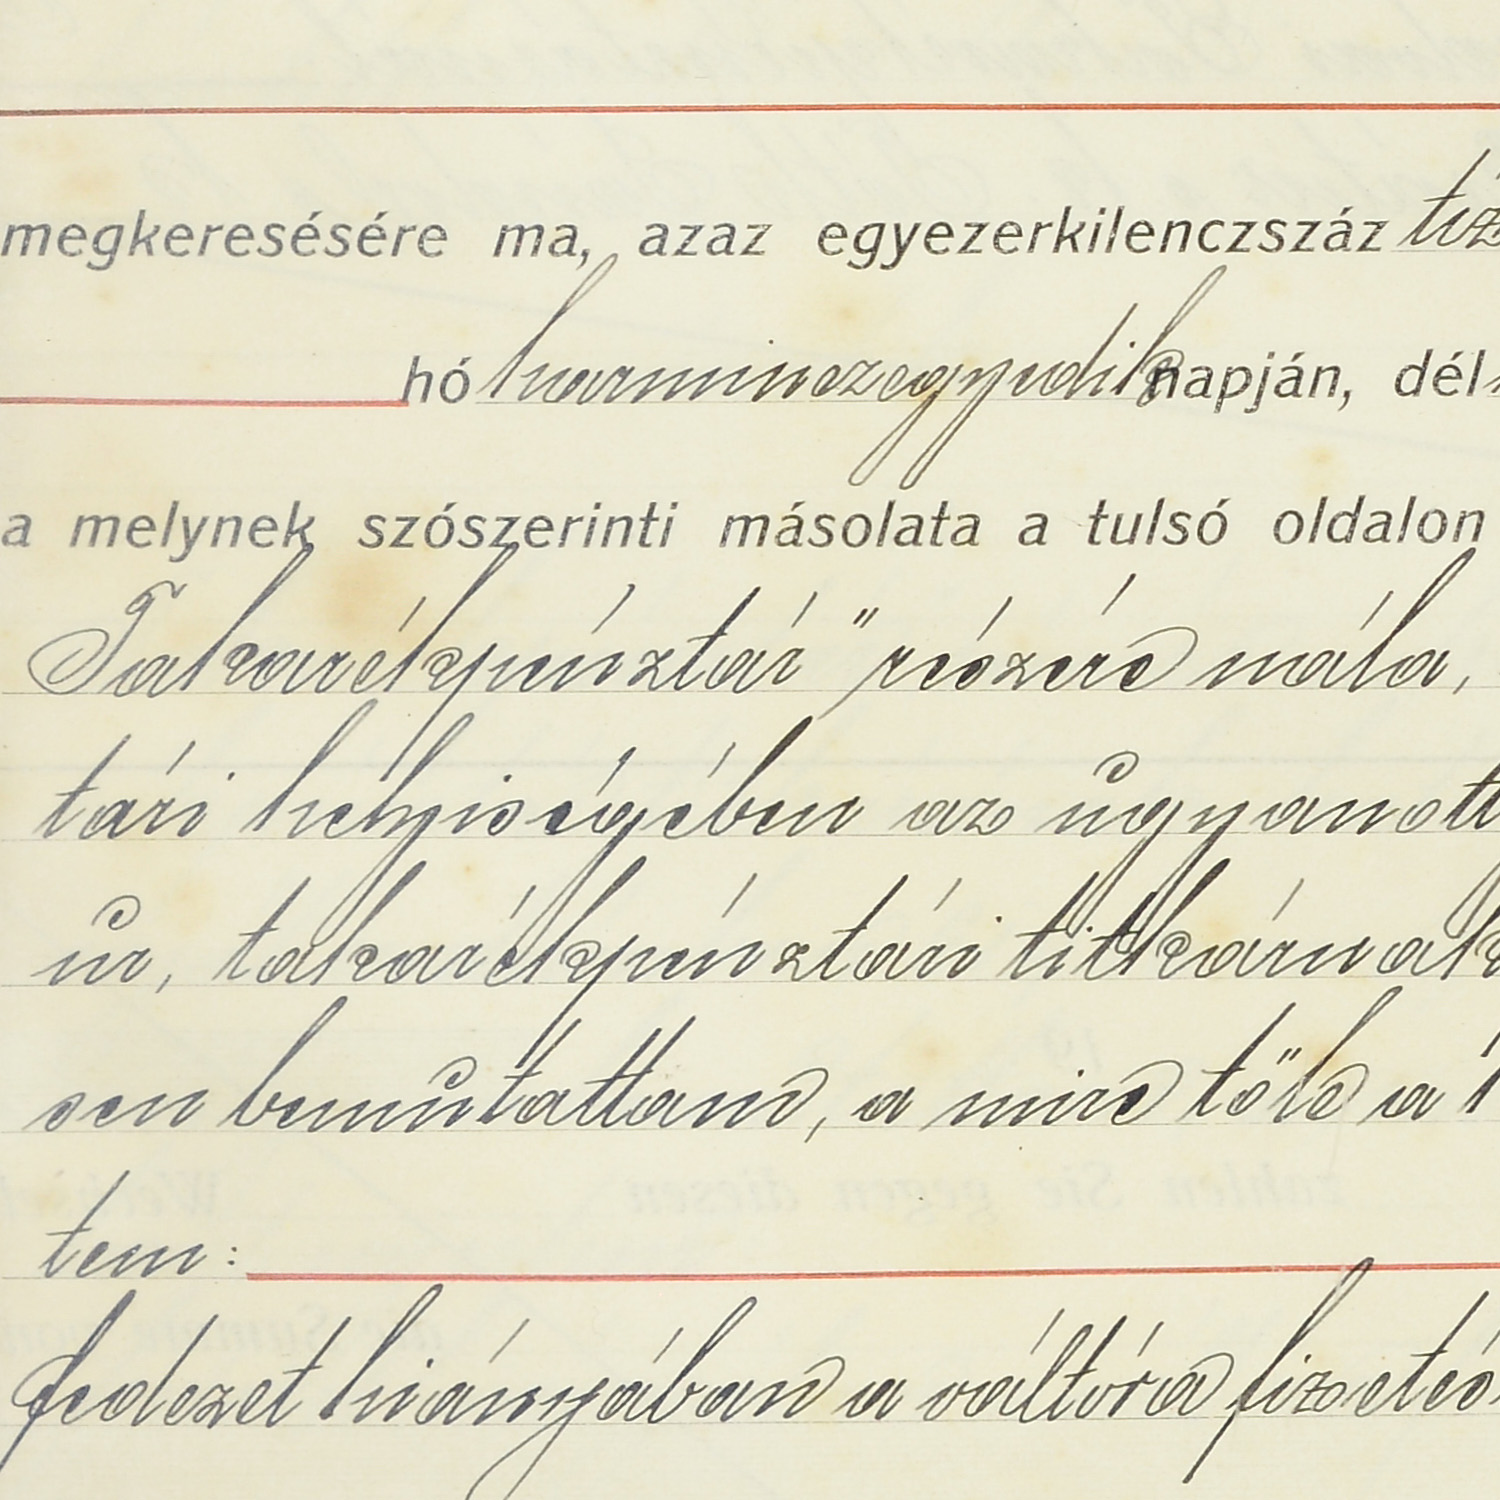 megkeresésére ma, azaz egyezerkilenczszáz tiz
hó harminczegyedik napján, dél
a melynek szószerinti másolata a tulsó oldalon
Takarékpénztár" részére nála,
tári helyiségében az ugyanott
úr, takarékpénztári titkárnak
sen bemutattam, a mire tőle a
tem:
fedezet hiányában a váltóra fizetés